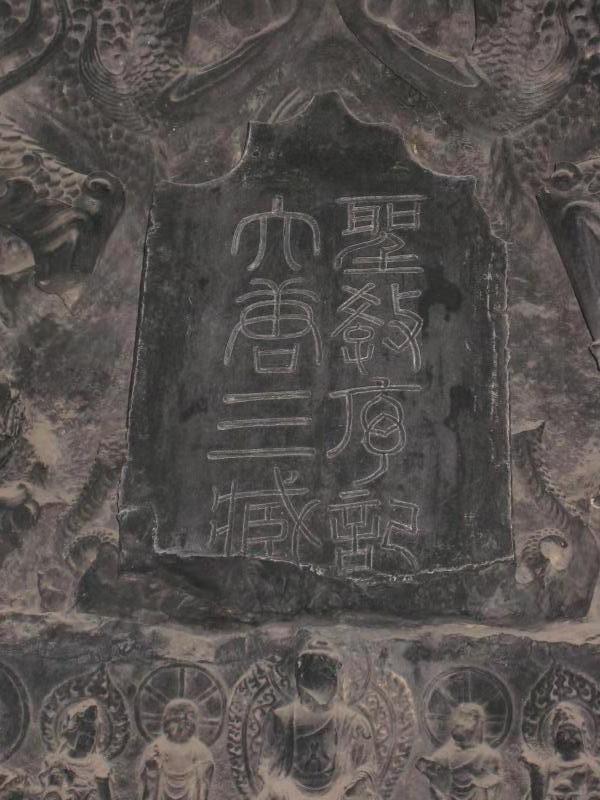 大唐三藏
聖教序記